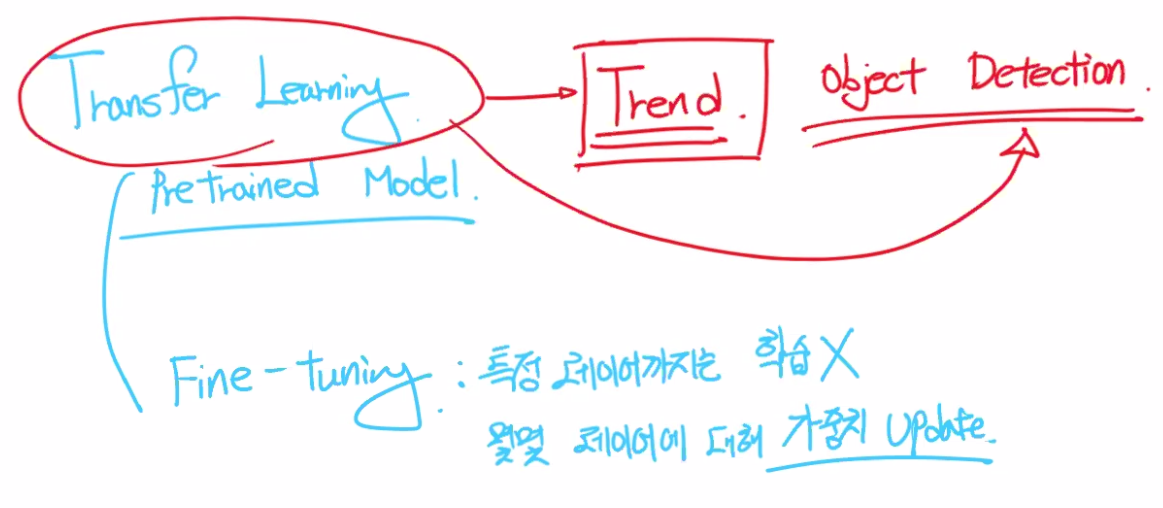 Transfer Learning.
Trend.
Object Detection.
Pretrained Model.
Fine-tuning : 특정 레이어까지는 학습 X
몇몇 레이어에 대해 가중치 Update.